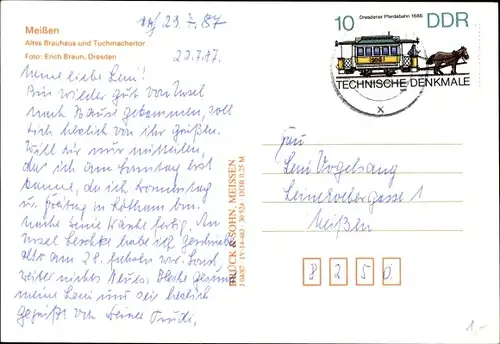 Meißen
Altes Brauhaus und Tuchmachertor
Foto: Erich Braun, Dresden
23.7.87.
Meine liebe Leni!
Bin wieder gut von
nach Haus gekommen, soll
Dich herzlich von ihr Grüßen.
Will Dir nur mitteilen,
das ich am Sonntag erst
komme, da ich Donnerstag
u. Freitag in bin.
Wäsche fertig. An
habe ich geschrieben
also am 28. Sonst
weiter nichts Neues. Bleibe gesund
meine Leni und sei herzlich
gegrüßt von Deiner Trudi.
BRÜCK & SOHN, MEISSEN
J 04/87 IV-14-483 30 524 DDR 0,25 M
10 Dresdener Pferdebahn 1886 DDR
TECHNISCHE DENKMALE
Frau
Leni Vogelsang
1
Meißen
8 2 5 0
1,-